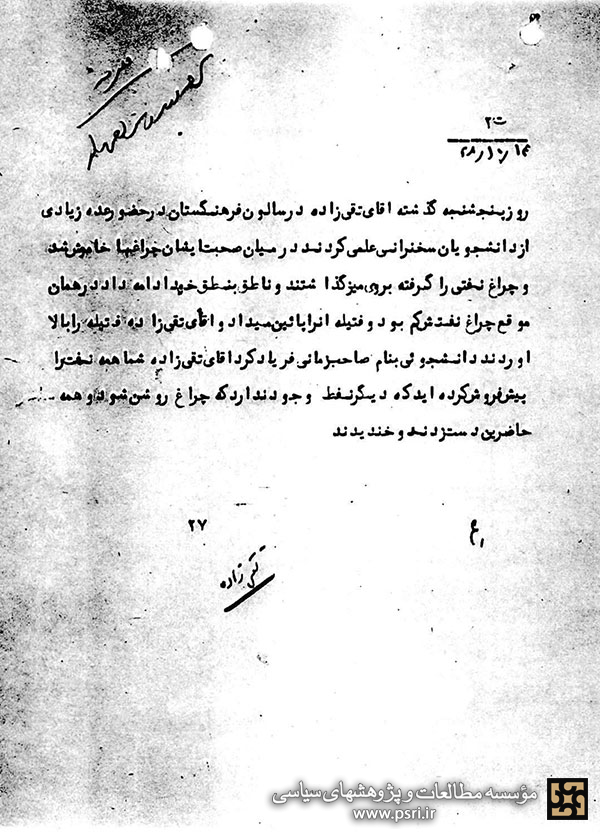 محرمانه
ت۲
۲۸/۱۰/۱۴
روز پنجشنبه گذشته اقای تقی زاده در سالون فرهنگستان در حضور عده زیادی
از دانشجویان سخنرانی علمی کردند در میان صحبت ایشان چراغها خاموش شد
و چراغ نفتی را گرفته بروی میز گذاشتند و ناطق بنطق خود ادامه داد در همان
موقع چراغ نفتش کم بود و فتیله انرا پائین میداد و اقای تقی زاده فتیله را بالا
اوردند دانشجوئی بنام صاحبزمانی فریاد کرد اقای تقی زاده شما همه نفت را
پیش فروش کرده اید که دیگر نفط وجود ندارد که چراغ روشن شود و همه
حاضرین دست زدند و خندیدند
۲۷
تقی زاده
مؤسسه مطالعات و پژوهشهای سیاسی
www.psri.ir